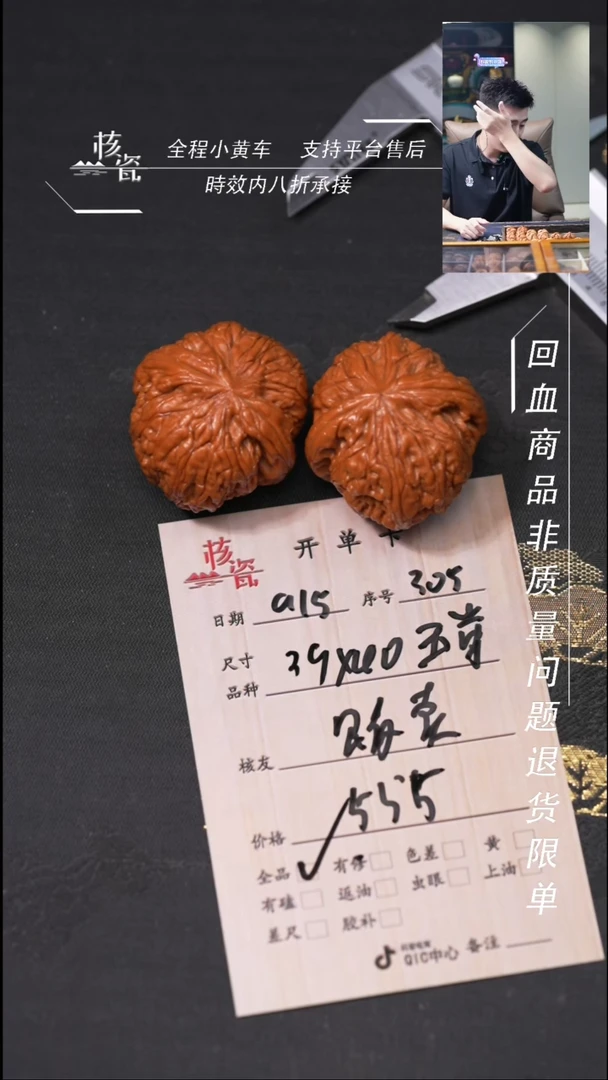 核瓷
全程小黄车 支持平台售后
時效内八折承接
回血商品非质量问题退货限单
核瓷
开单卡
日期 915 序号 305
尺寸
品种 39x40
核友
价格 555
全品 有修 色差 黄
有磕 返油 虫眼 上油
差尺 胶补
抖音电商
QIC中心 备注